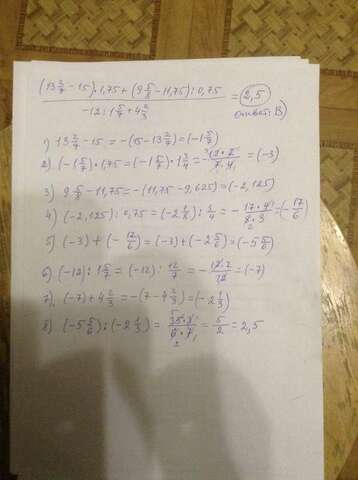 (13 2/7 − 15) · 1,75 + (9 5/8 − 11,75) : 0,75
−12 : 1 5/7 + 4 2/3 = 2,5
ответ: В)
1) 13 2/7 − 15 = −(15 − 13 2/7) = (−1 5/7)
2) (−1 5/7) · 1,75 = (−1 5/7) · 1 3/4 = − 12 · 7 / 7 · 4 = (−3)
3) 9 5/8 − 11,75 = −(11,75 − 9,625) = (−2,125)
4) (−2,125) : 0,75 = (−2 1/8) : 3/4 = − 17 · 4 / 8 · 3 = (− 17/6)
5) (−3) + (− 17/6) = (−3) + (−2 5/6) = (−5 5/6)
6) (−12) : 1 5/7 = (−12) : 12/7 = − 12 · 7 / 12 = (−7)
7) (−7) + 4 2/3 = −(7 − 4 2/3) = (−2 1/3)
8) (−5 5/6) : (−2 1/3) = 35 · 3 / 6 · 7 = 5/2 = 2,5